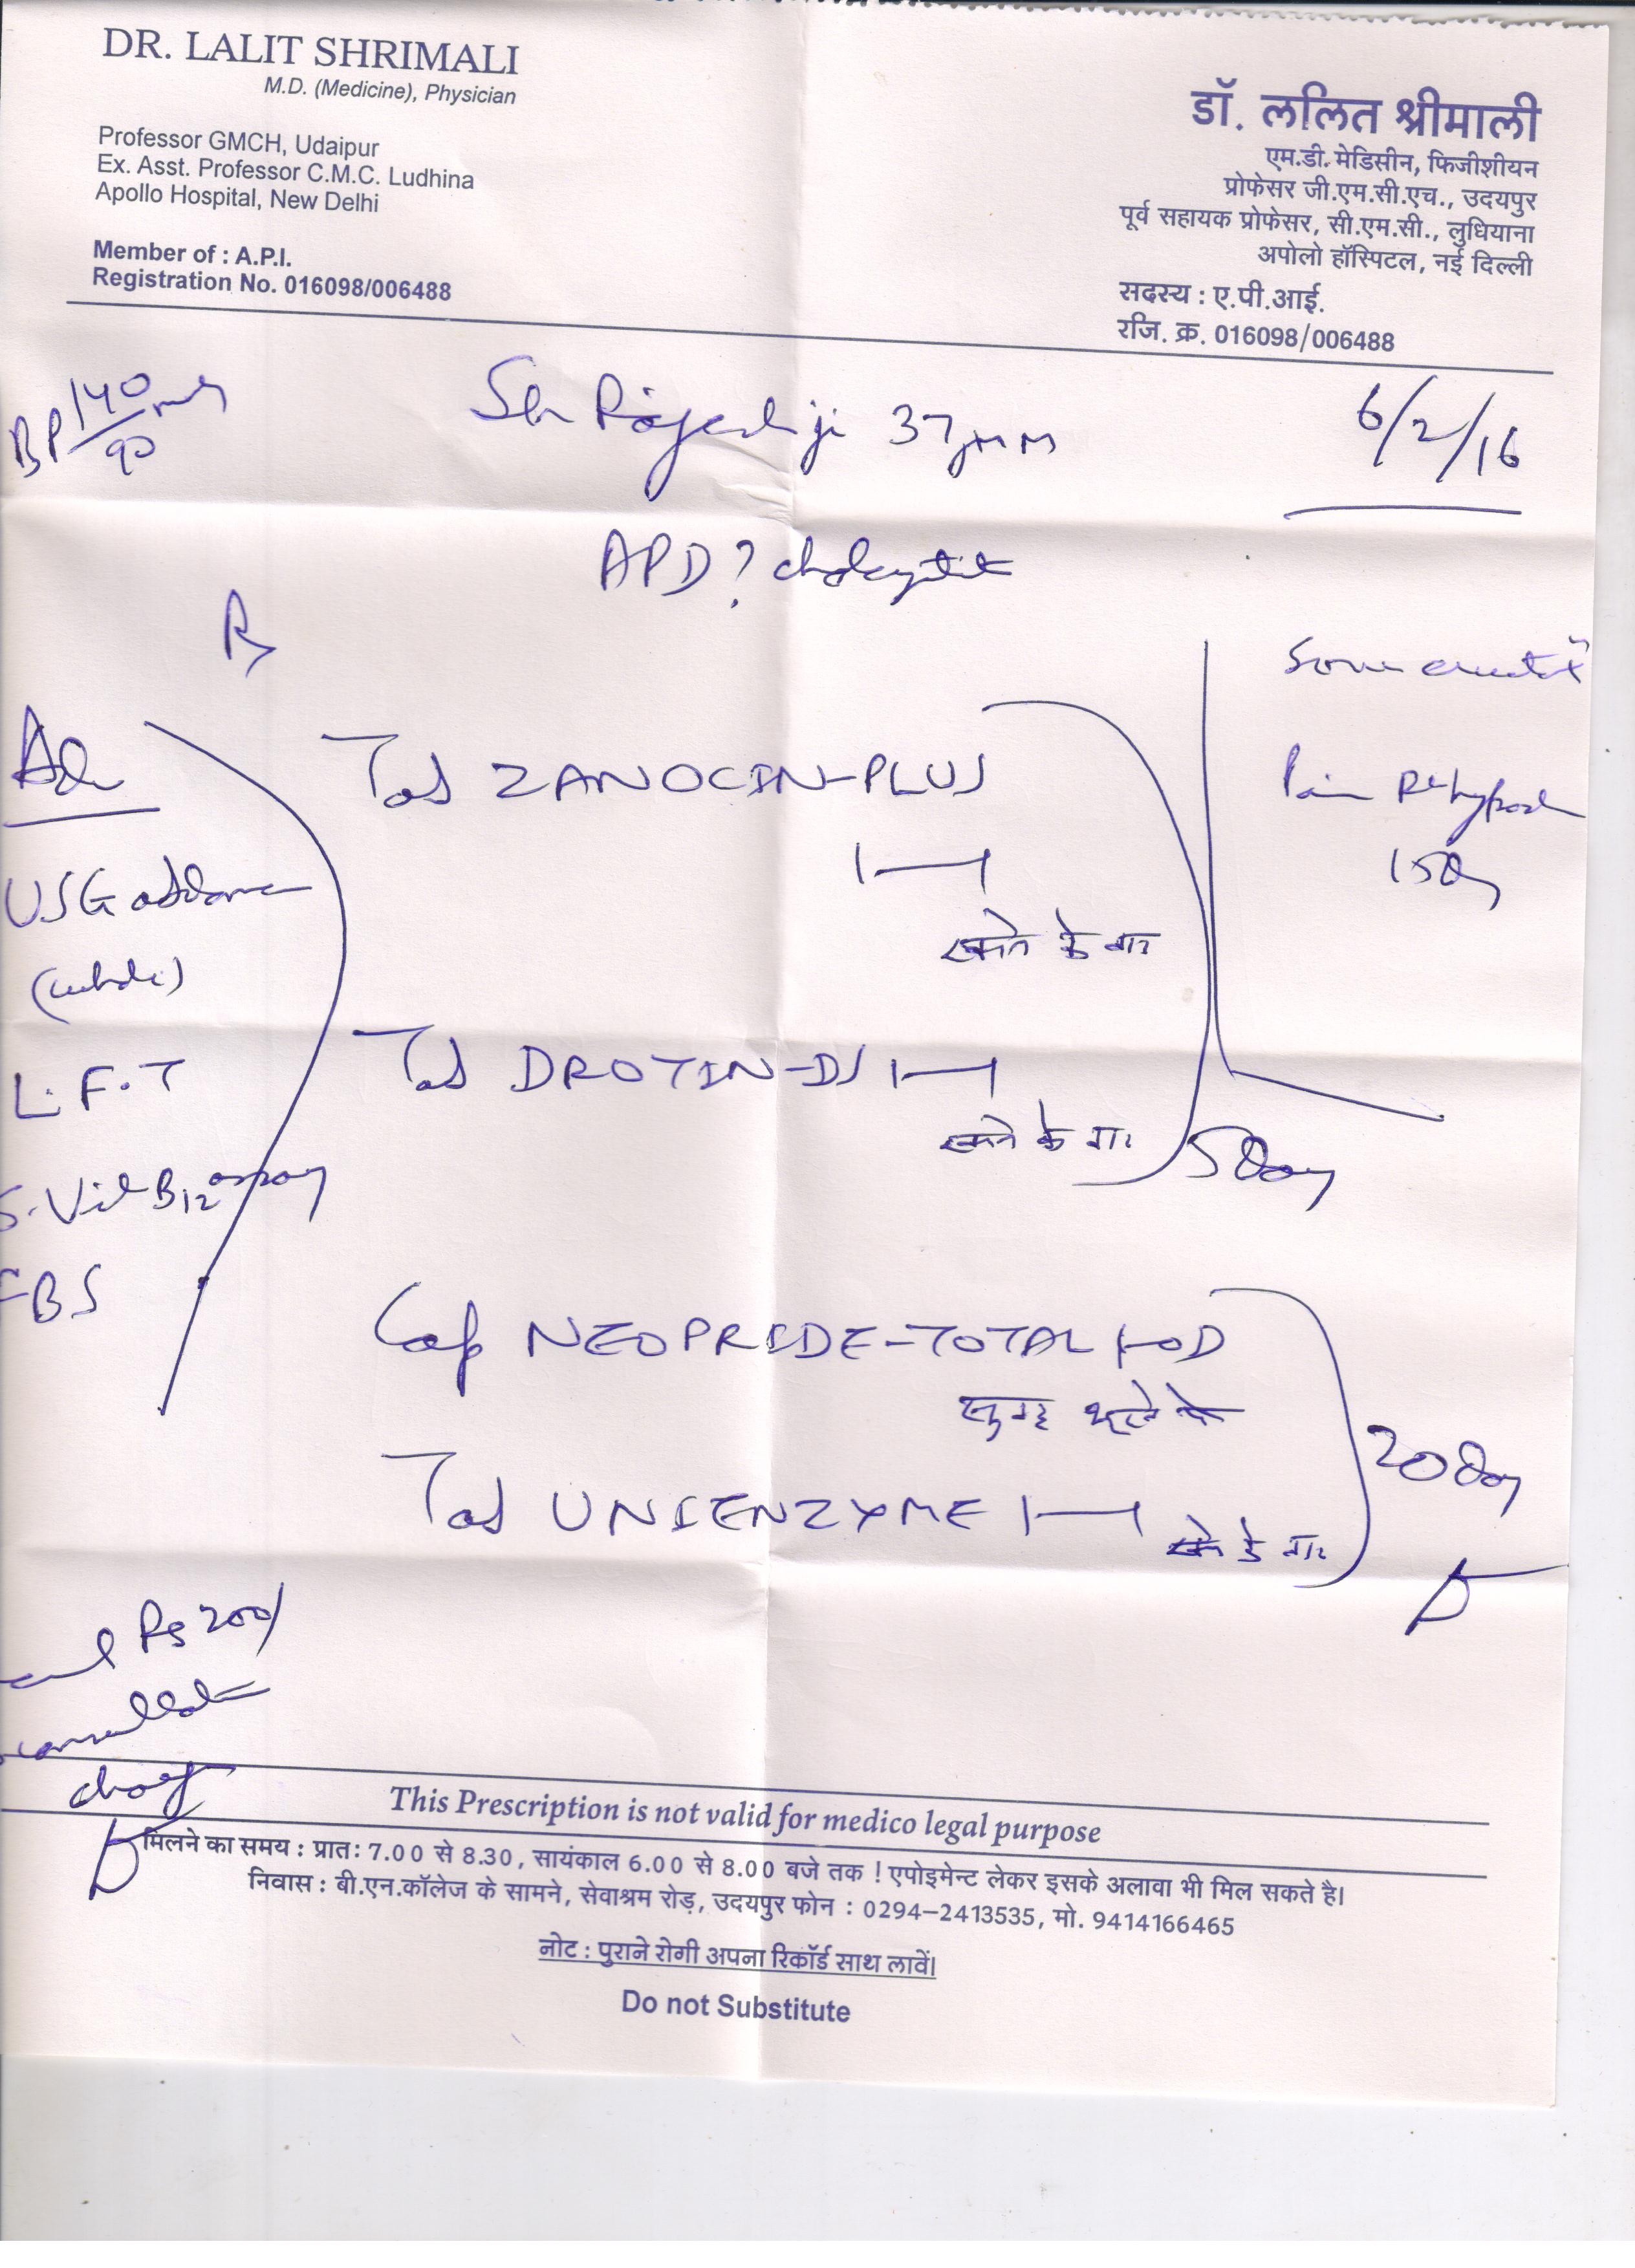 DR. LALIT SHRIMALI
M.D. (Medicine), Physician
Professor GMCH, Udaipur
Ex. Asst. Professor C.M.C. Ludhina
Apollo Hospital, New Delhi
Member of : A.P.I.
Registration No. 016098/006488
डॉ. ललित श्रीमाली
एम.डी. मेडिसीन, फिजीशीयन
प्रोफेसर जी.एम.सी.एच., उदयपुर
पूर्व सहायक प्रोफेसर, सी.एम.सी., लुधियाना
अपोलो हॉस्पिटल, नई दिल्ली
सदस्य : ए.पी.आई.
रजि. क्र. 016098/006488
BP 140/90
Rajesh ji 37
6/2/16
APD ?
Rx
Tab ZANOCIN-PLUS
1—1
खाने के बाद
Tab DROTIN-DS 1—1
खाने के बाद
5 Day
Cap NEOPRIDE-TOTAL 1-OD
सुबह भूखे पेट
Tab UNIENZYME 1—1
खाने के बाद
20 Day
Adv
USG abdomen
(whole)
L.F.T
S. Vit B12 assay
FBS
Sour
Pain Rt hypoch
15 Day
Rs 200/
consultation
charge
This Prescription is not valid for medico legal purpose
मिलने का समय : प्रातः 7.00 से 8.30, सायंकाल 6.00 से 8.00 बजे तक ! एपोइमेन्ट लेकर इसके अलावा भी मिल सकते है।
निवास : बी.एन.कॉलेज के सामने, सेवाश्रम रोड़, उदयपुर फोन : 0294-2413535, मो. 9414166465
नोट : पुराने रोगी अपना रिकॉर्ड साथ लावें।
Do not Substitute